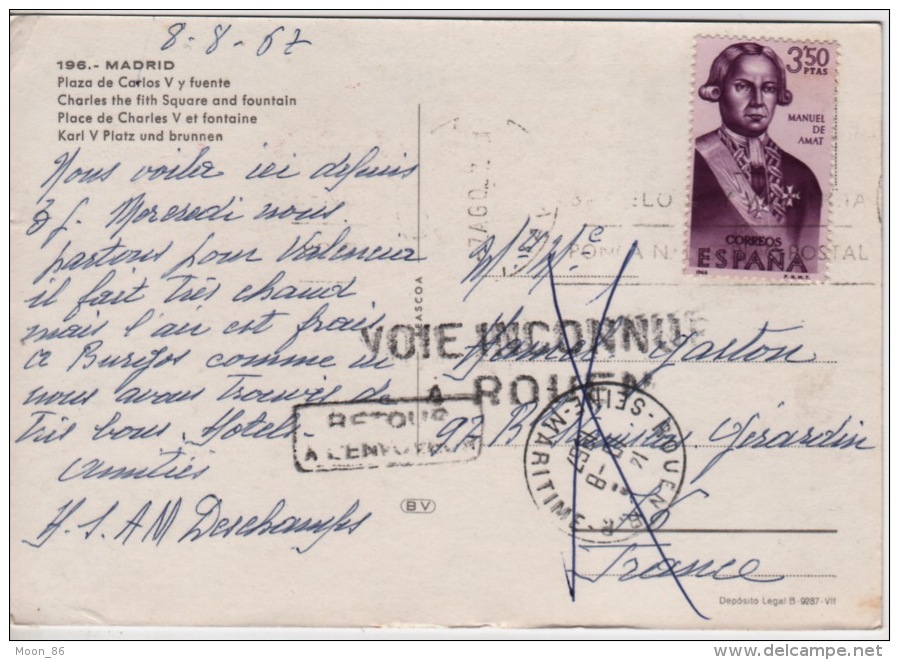 8-8-67
196.- MADRID
Plaza de Carlos V y fuente
Charles the fith Square and fountain
Place de Charles V et fontaine
Karl V Platz und brunnen
Nous voila ici depuis
3 J. Mercredi nous
partons pour Valencia
il fait très chaud
mais l'air est frais
a Burgos comme ici
nous avons trouvés de
très bons Hotels
Amitiés
H.S.AM Deschamps
3'50
PTAS
MANUEL
DE
AMAT
CORREOS
ESPAÑA
7 AGO
POSTAL
VOIE INCONNUE
A ROUEN
RETOUR
A L'ENVOYEUR
Gaston
97 B Gérardin
ROUEN
SEINE-MARITIME
France
BV
Depósito Legal B-9287-VII
Moon_86